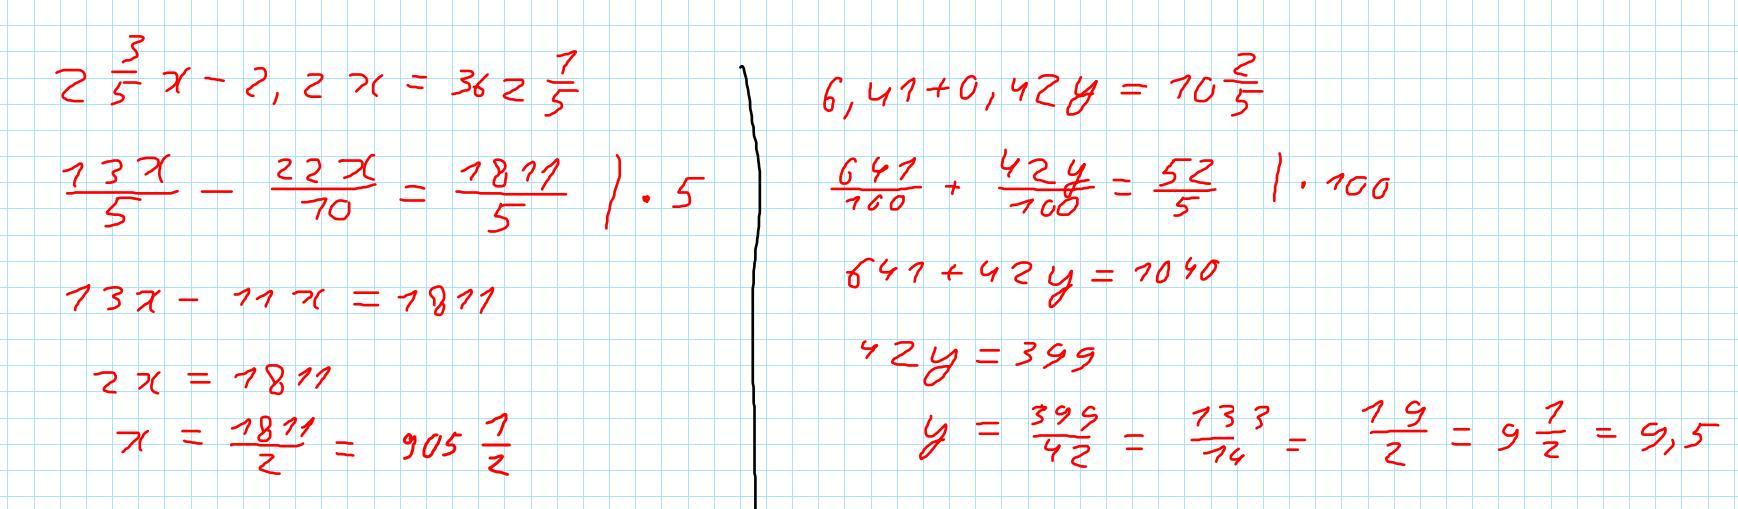 2 3/5 x - 2,2x = 362 1/5
13x/5 - 22x/10 = 1811/5 | · 5
13x - 11x = 1811
2x = 1811
x = 1811/2 = 905 1/2
6,41+0,42y = 10 2/5
641/100 + 42y/100 = 52/5 | · 100
641 + 42y = 1040
42y = 399
y = 399/42 = 133/14 = 19/2 = 9 1/2 = 9,5